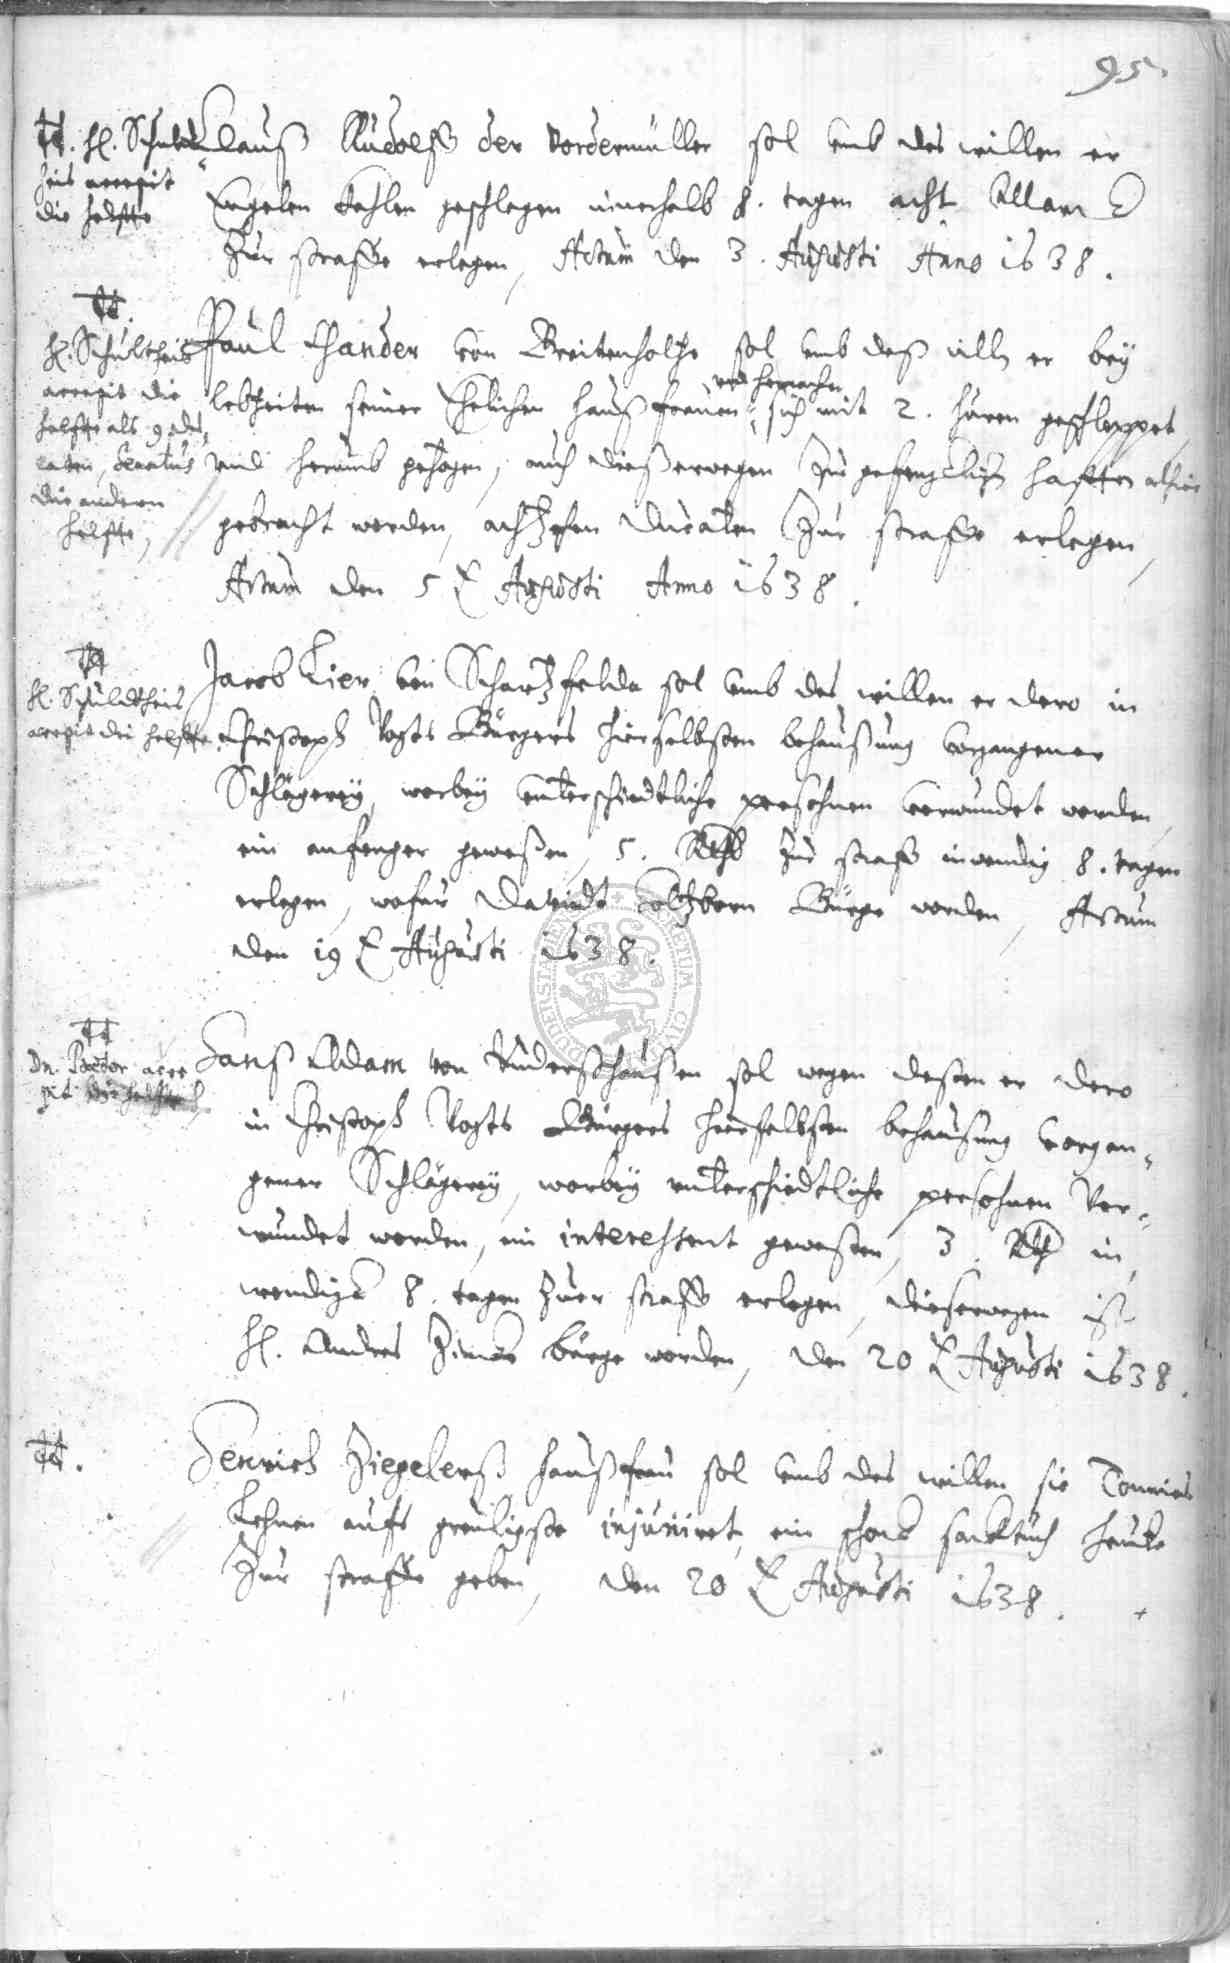 95.
tt. H. Schuld
heis accepit
die helffte
Clauß Rudolff der Vordermüller sol umb des willen er
Engelen Kahlen geschlagen innerhalb 8. tagen acht
Zur straffe erlegen, Actum den 3. Augusti Anno 1638.
tt.
H. Schultheis
accepit die
helffte als 9 du,
caten, Senatus
die andern
helffte,
Paul Thander von Breitenholtze sol umb deß willn er bey
und hernacher
lebzeiten seiner Ehelichen haußfrauen sich mit 2. huren geschleppet,
und herumb gezogen, auch dießerwegen zur gefenglichen hafften alhier
gebracht worden, achtzehen Ducaten Zur straffe erlegen,
Actum den 5 Augusti Anno 1638.
tt
H. Schuldtheis
accepit die helffte.
Jacob Lier von Schartzfelde sol umb des willen er dero in
Christoph Vogts Bürgers hierselbsten behaußung vorgangener
Schlägerey, worbey unterschiedtliche persohnen verwundet worden,
ein anfenger geweßen, 5. Rthlr Zur straff inwendig 8. tagen
erlegen, wofür Davidt Bürge worden, Actum
den 19 Augusti 1638.
tt
Dn. Praetor acce
pit die helffte
Hanß Adam von Rüdershaußen sol wegen deßen er dero
in Christoph Vogts Bürgers hierselbsten behausung vorgan-
gener Schlägerey, worbey unterschiedtliche persohnen Ver-
wundet worden, ein interessent geweßen, 3. Rth in,
wendig 8. tagen Zuer straff erlegen, dieserwegen ist
H. Andres bürge worden, den 20 Augusti 1638.
tt.
Henrich Ziegelerß haußfrau sol umb des willen sie Tonnies
Lehnen aufs greuligste injuriret, ein
Zur straffe geben, den 20 Augusti 1638.